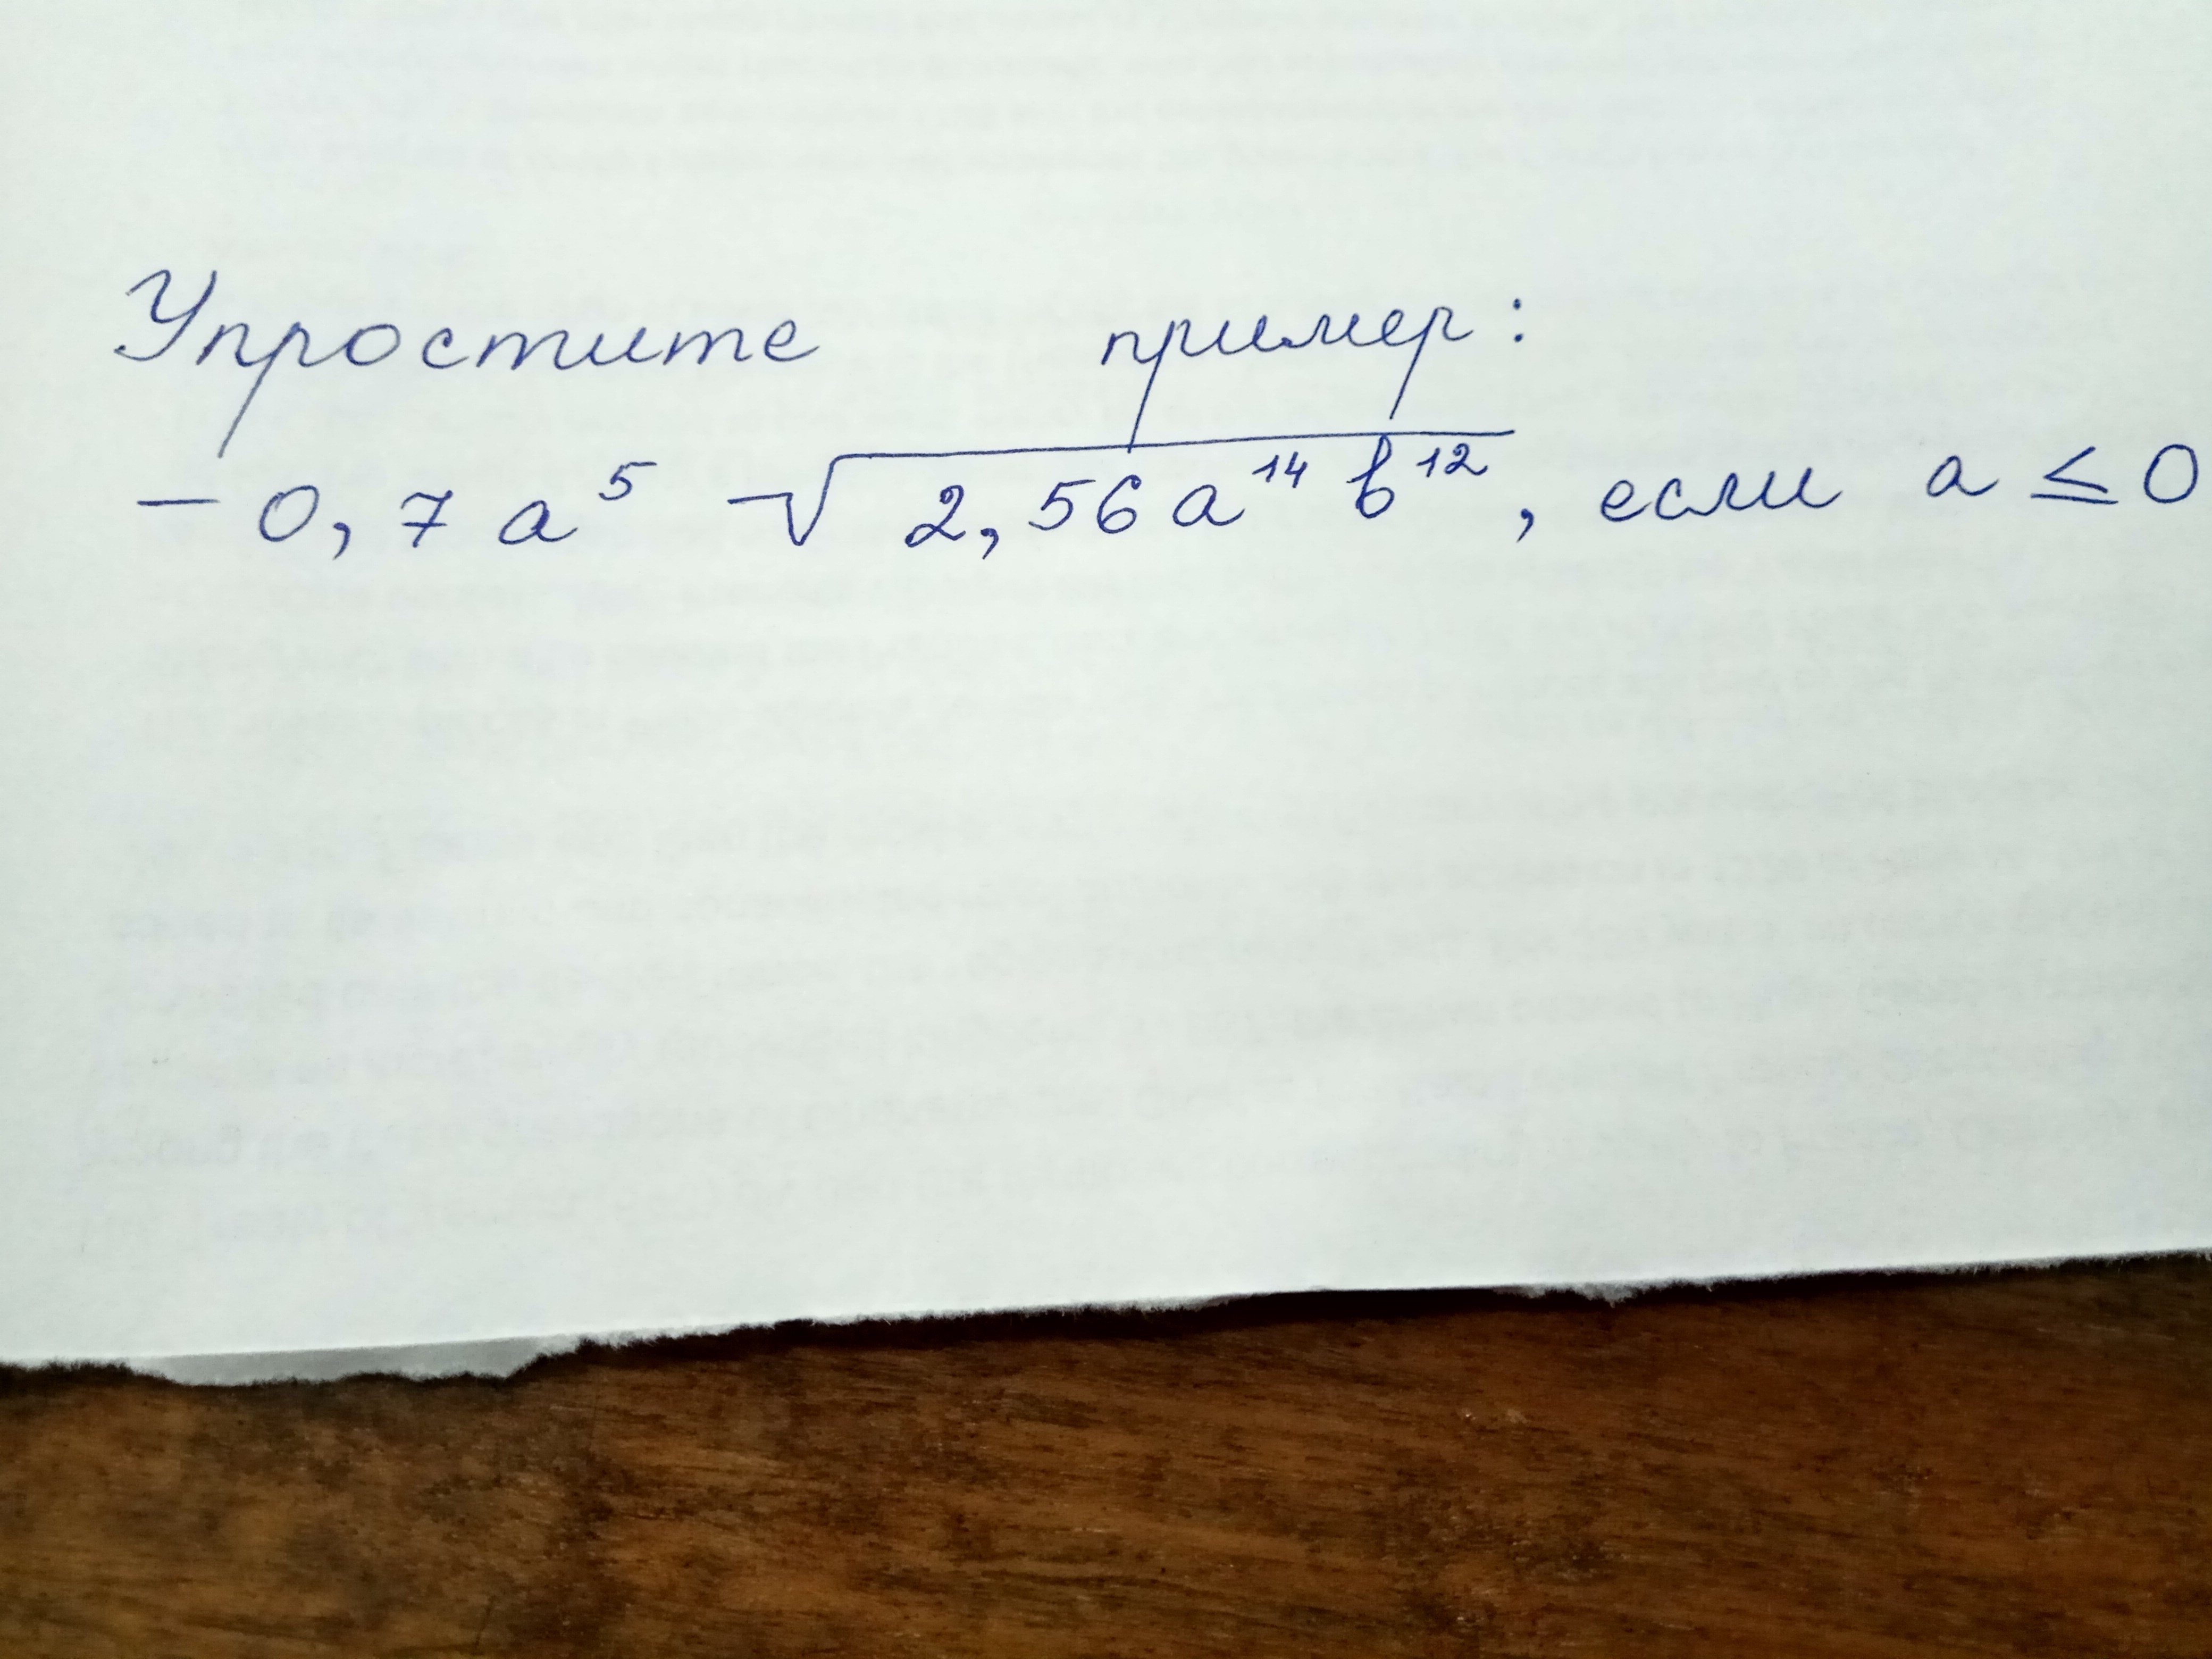 Упростите пример:
- 0,7 a⁵ √2,56 a¹⁴ b¹², если a ≤ 0